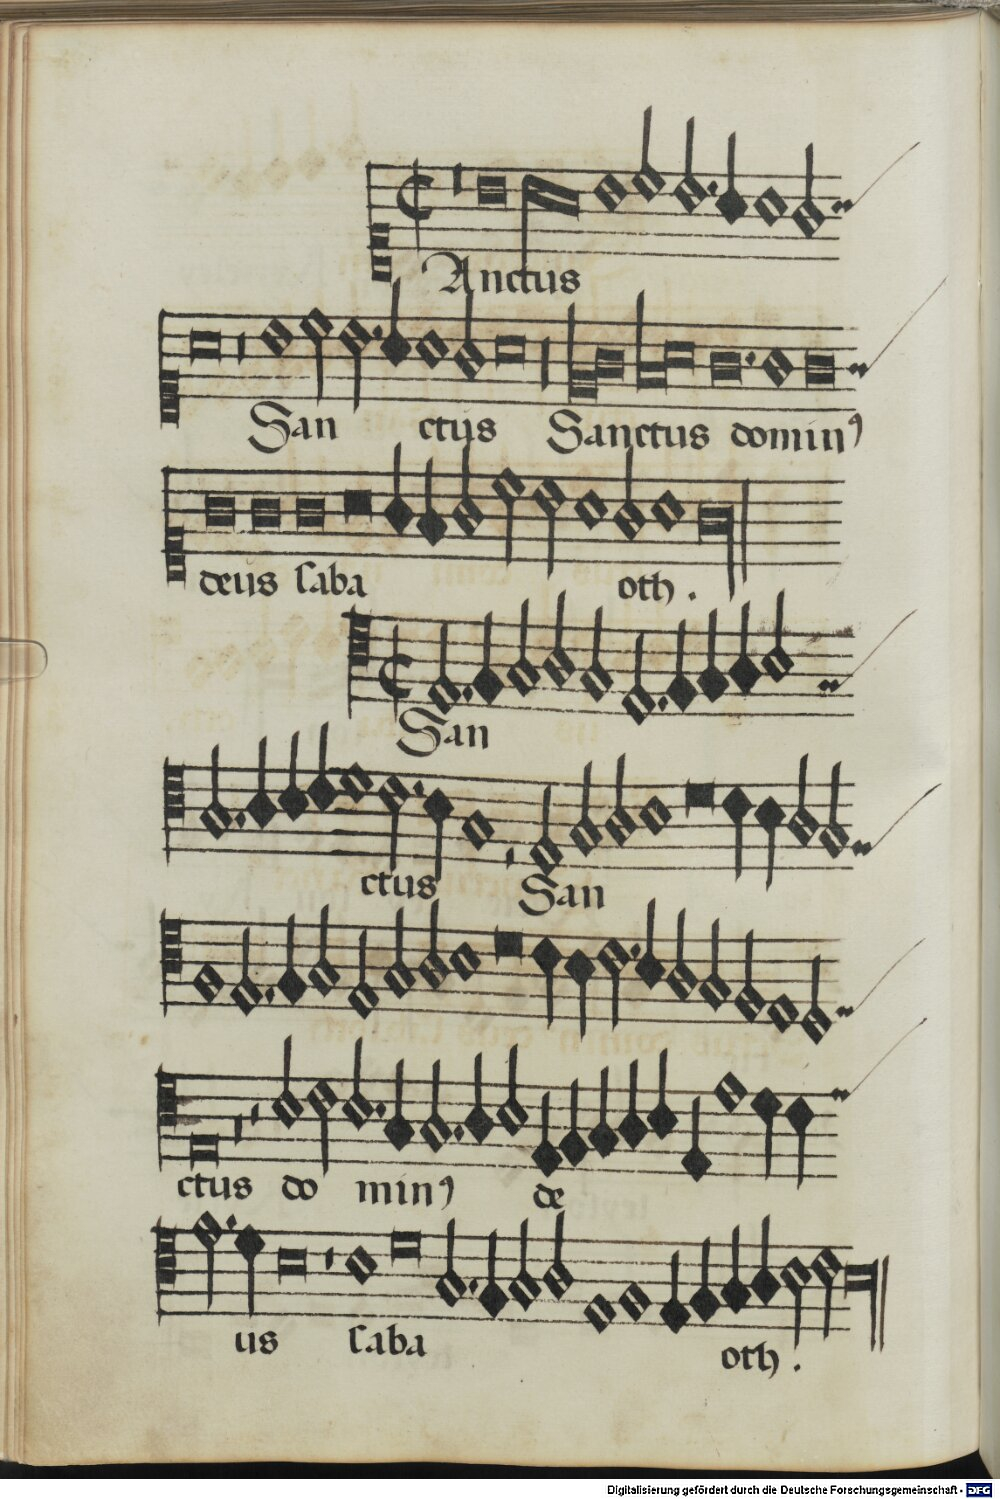 Anctus
San ctus Sanctus domin⁹
deus saba oth .
San
ctus San
ctus do min⁹ de
us saba oth .
Digitalisierung gefördert durch die Deutsche Forschungsgemeinschaft - DFG